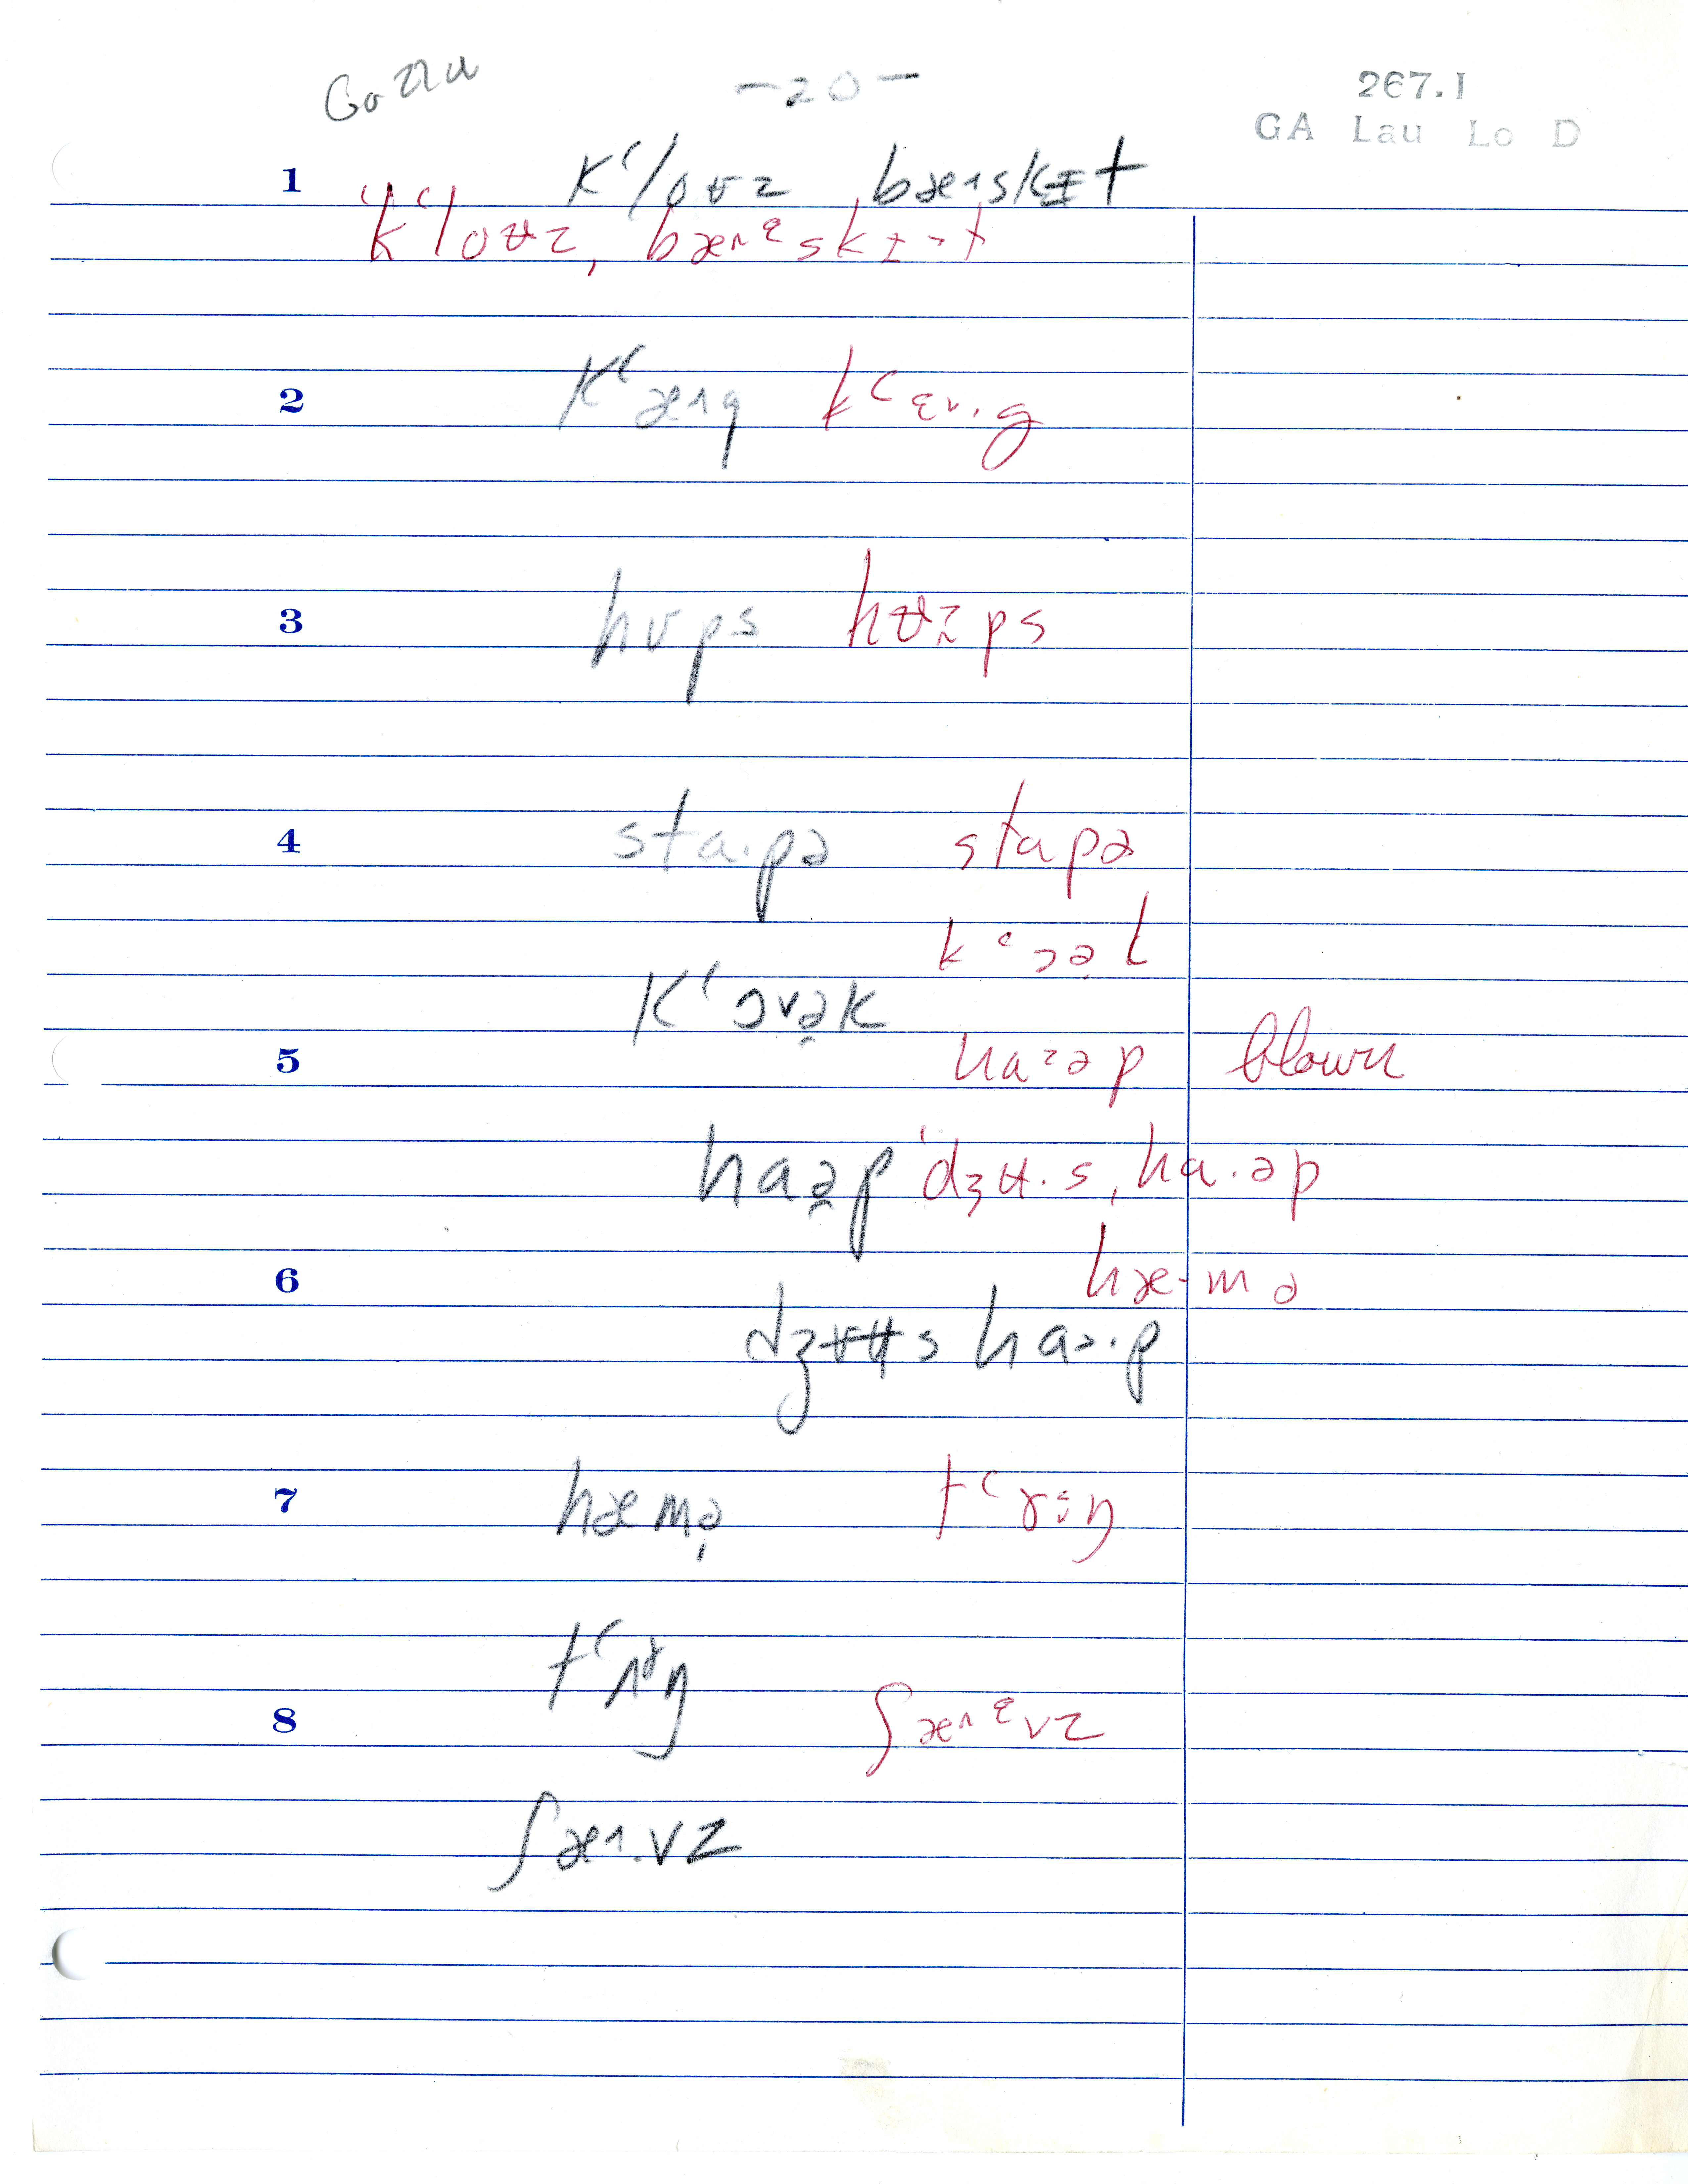 -20-
267.1
GA Lau Lo D
1 kʻloʊz bæ˄skɪt
ˈkʻloʊz, bæ˄ᵋskɪ˃t
2 kʻæ˄g kʻɛ˅·g
3 hʊps hʊ˃ps
4 sta·pə stapə
kʻɔə̯l
kʻɔ˅ə̯k
5 ha˃əp blown
haə̯p ˈdʒʉ·s, ha·əp
6 hæ·mə
dʒʊʉs ha˃·p
7 hæmə̩ tʻɤ·ŋ
tʻʌˠŋ
8 ʃæ˄ᵋvz
ʃæ˄·vz